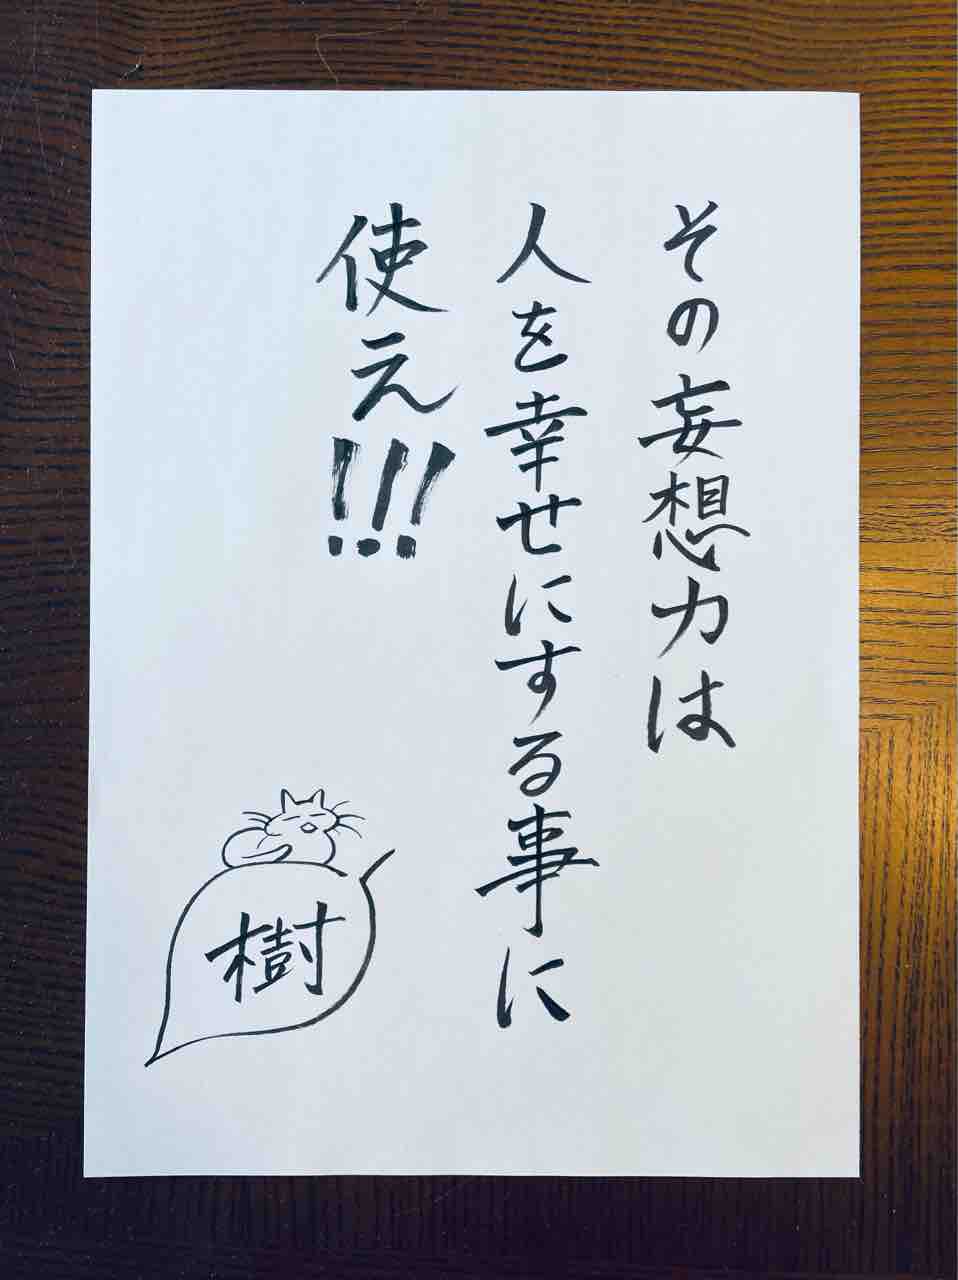 その妄想力は
人を幸せにする事に
使え!!!
樹